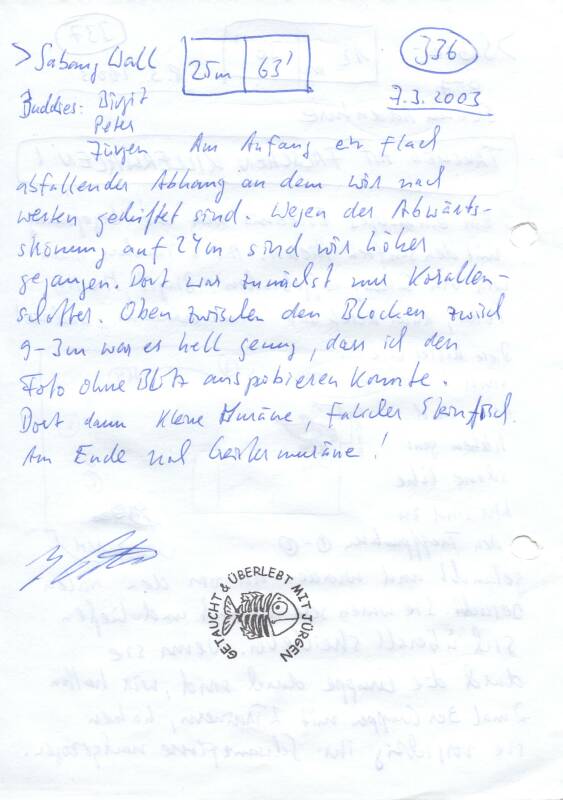 > Sabang Wall 25m 63' 336
7.3.2003
Buddies: Birgit
Peter
Jürgen Am Anfang ein flach
abfallender Abhang an dem wir nach
westen gedriftet sind. Wegen der Abwärts-
strömung auf 24m sind wir höher
gegangen. Dort war zunächst nur Korallen-
schotter. Oben zwischen den Blöcken
9-3m war es hell genug, dass ich den
Foto ohne Blitz ausprobieren konnte.
Dort dann kleine Muräne, Falscher Steinfisch.
Am Ende noch Geistermuräne!
GETAUCHT & ÜBERLEBT MIT JÜRGEN